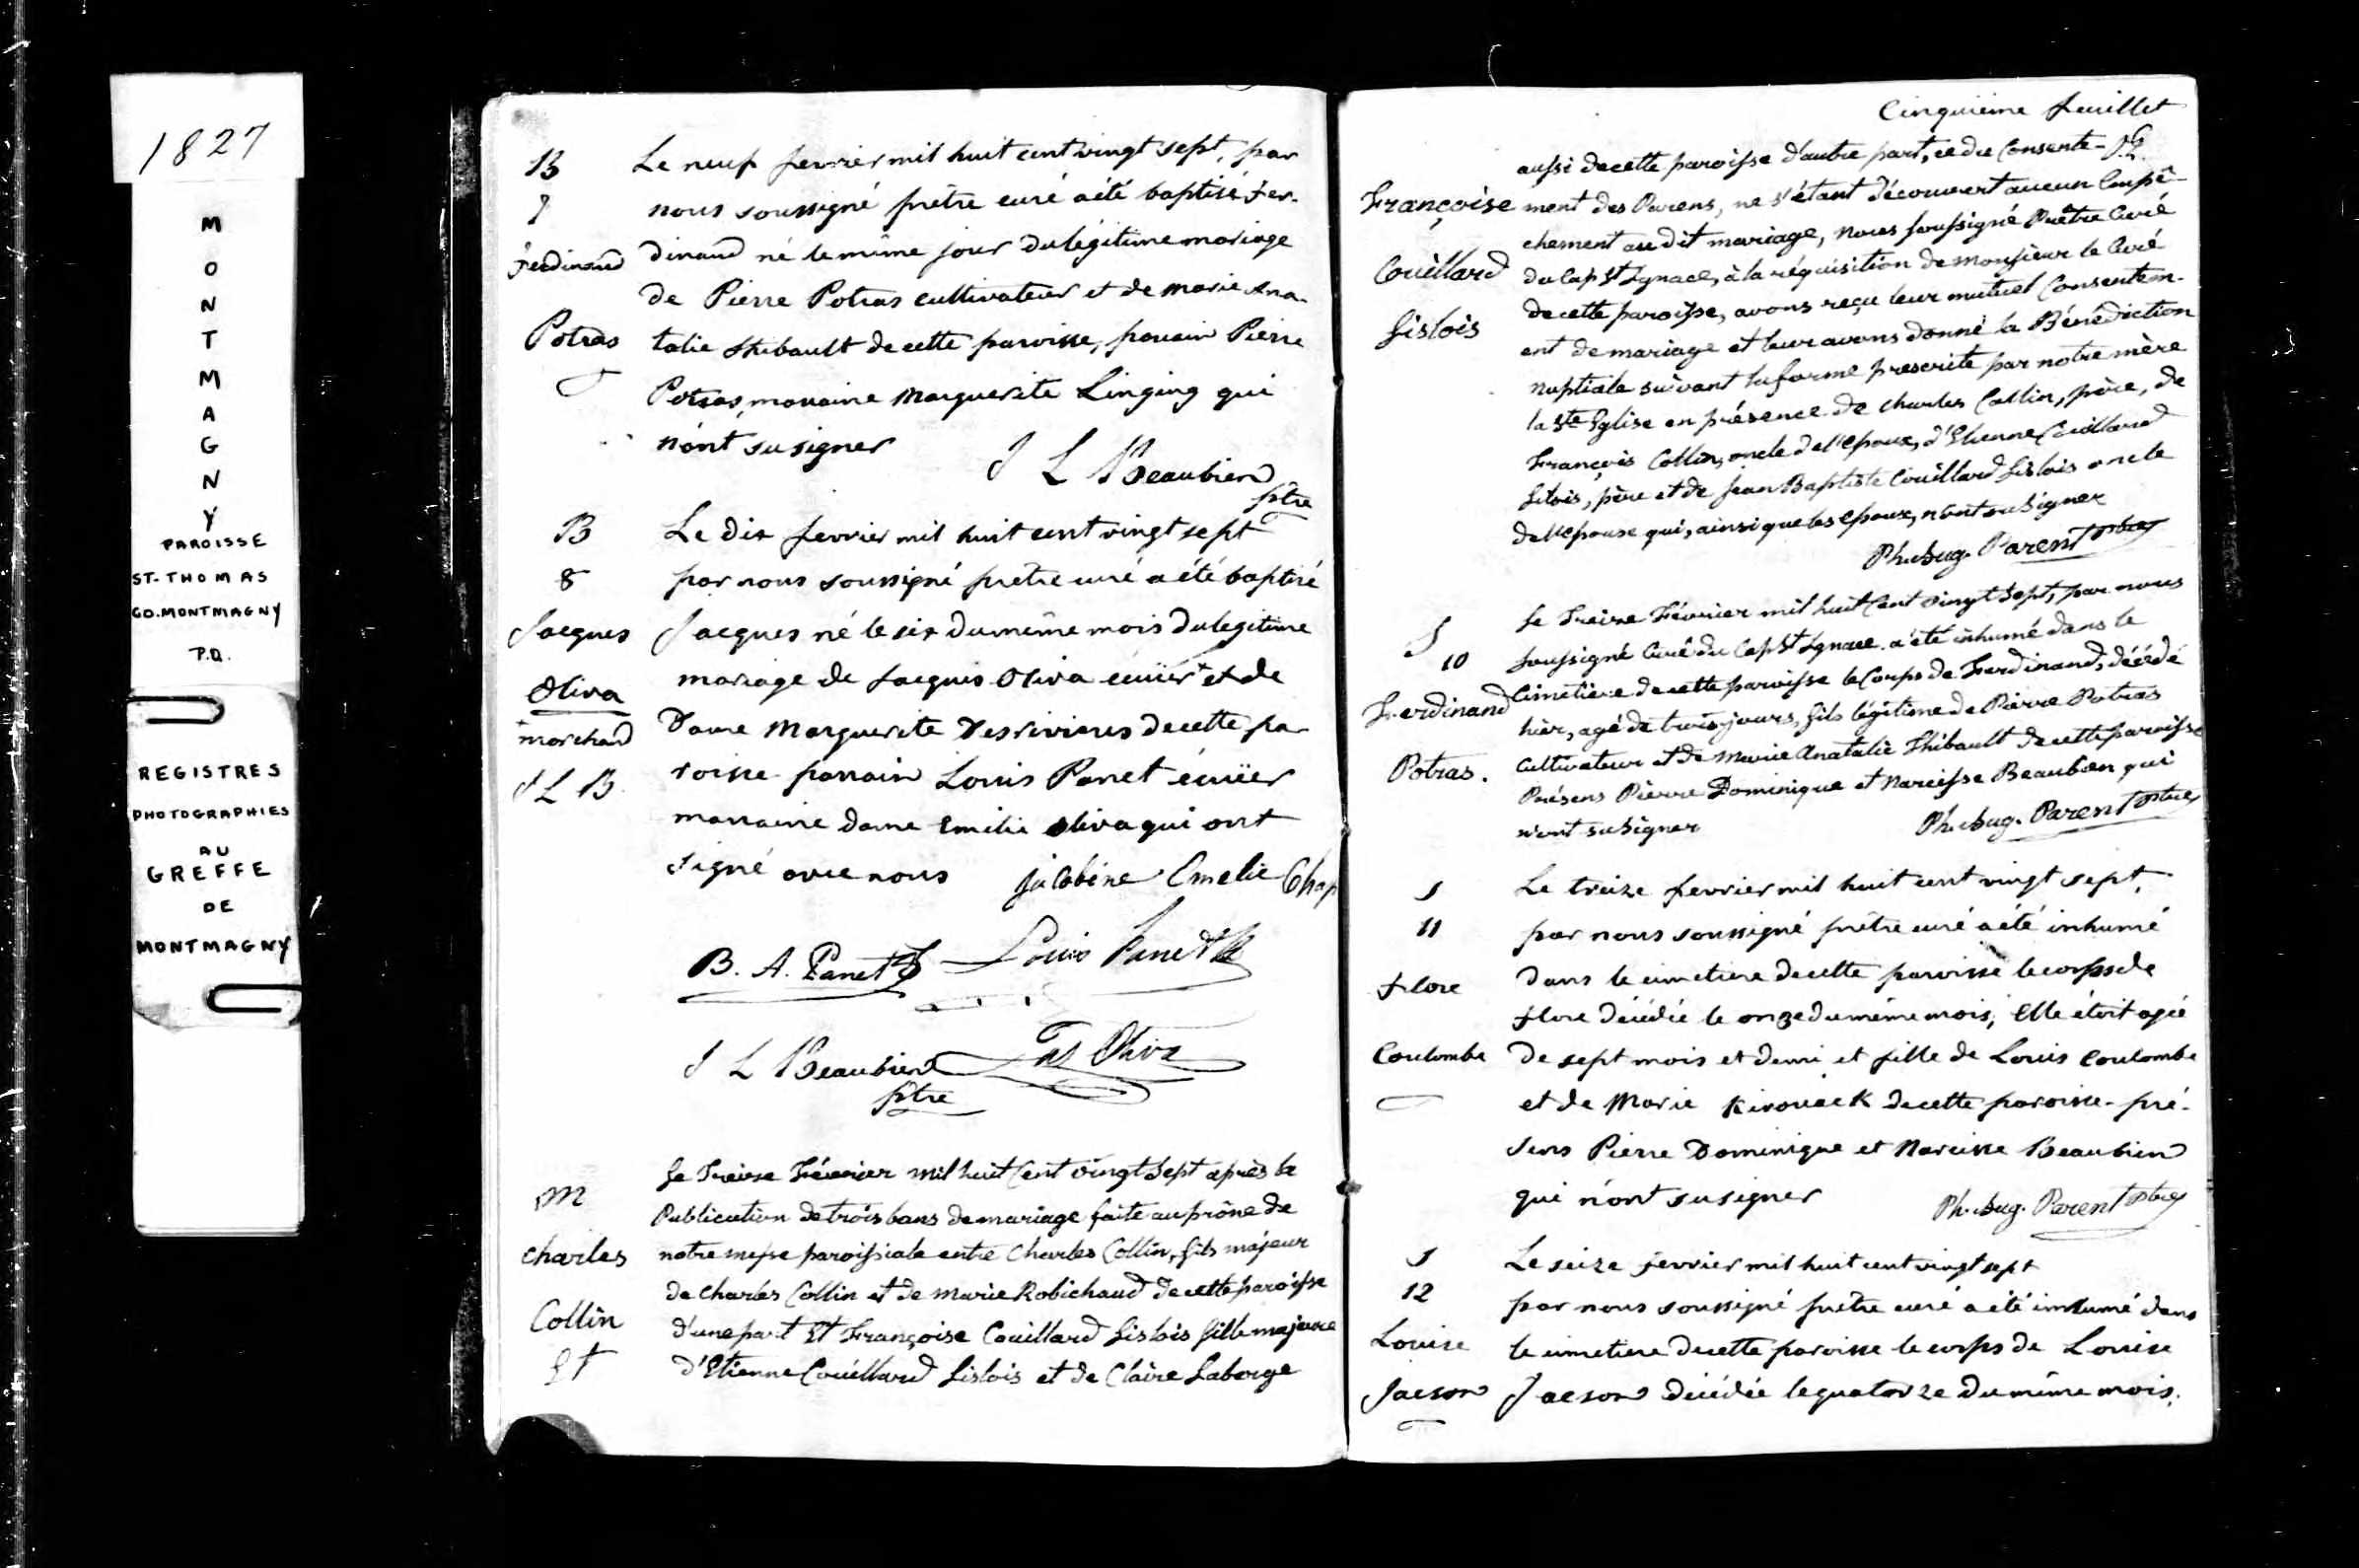 1827
M
O
N
T
M
A
G
N
Y
PAROISSE
ST-THOMAS
CO.MONTMAGNY
P.Q.
REGISTRES
PHOTOGRAPHIES
AU
GREFFE
DE
MONTMAGNY
B
7
ferdinand
Potras
Le neuf fevrier mil huit cent vingt sept, par
nous soussigné prêtre curé a été baptisé fer-
dinand né le même jour du légitime mariage
de Pierre Potras cultivateur et de marie Ana-
talie thibault de cette paroisse, parrain Pierre
Potras, marraine Marguerite Linging qui
n'ont su signer
J L Beaubien
ptre
B
8
Jacques
Oliva
+ marchand
J L B
Le dix fevrier mil huit cent vingt sept
par nous soussigné prêtre curé a été baptisé
Jacques né le six du même mois du legitime
mariage de Jacques Oliva écuïer + et de
Dame Marguerite Desrivieres de cette pa-
roisse parrain Louis Panet écuïer
marraine dame Emilie Oliva qui ont
signé avec nous Jacobine Emelie Chap
B. A. Panet Louis Panet
J L Beaubien Jas Oliva
ptre
M
Charles
Collin
Et
Le Treize Février mil huit Cent vingt Sept après la
Publication de trois bans de mariage faite au prône de
notre messe paroissiale entre Charles Collin, fils majeur
de Charles Collin et de Marie Robichaud de cette paroisse
d'une part Et Françoise Couillard Lislois fille majeure
d'Etienne Couillard Lislois et de Claire Laberge
Cinquième feuillet
Françoise
Couillard
Lislois
aussi de cette paroisse d'autre part, ce du Consente-
ment des Parens, ne s'étant découvert aucun Empê-
chement au dit mariage, Nous soussigné Prêtre Curé
du Cap St Ignace, à la réquisition de Monsieur le Curé
de cette paroisse, avons reçu leur mutuel Consentem-
ent de mariage et leur avons donné la Bénédiction
Nuptiale suivant la forme prescrite par notre mère
la Ste Eglise en présence de Charles Collin, père, de
François Collin, oncle de l'epoux, d'Etienne Couillard
Lislois, père et de Jean Baptiste Couillard Lislois oncle
de l'epouse qui, ainsi que les epoux, n'ont su Signer
Ph. Aug. Parent Ptre
S
10
Ferdinand
Potras.
Le Treize Février mil huit Cent vingt Sept, par nous
soussigné Curé du Cap St Ignace a été inhumé dans le
Cimetière de cette paroisse le Corps de Ferdinand, décédé
hier, agé de trois jours, fils légitime de Pierre Potras
Cultivateur et de Marie Anatalie Thibault de cette paroisse
Présens Pierre Dominique et Narcisse Beaubien qui
n'ont su Signer
Ph. Aug. Parent Ptre
S
11
flore
Coulombe
Le treize fevrier mil huit cent vingt sept,
par nous soussigné prêtre curé a été inhumé
dans le cimetiere de cette paroisse le corps de
flore décédée le onze du même mois, Elle étoit agée
de sept mois et demi et fille de Louis Coulombe
et de Marie Kirouack de cette paroisse. pré-
sens Pierre Dominique et Narcisse Beaubien
qui n'ont su signer
Ph. Aug. Parent Ptre
S
12
Louise
Jacson
Le seize fevrier mil huit cent vingt sept
par nous soussigné prêtre curé a été inhumé dans
le cimetiere de cette paroisse le corps de Louise
Jacson décédée le quatorze du même mois,